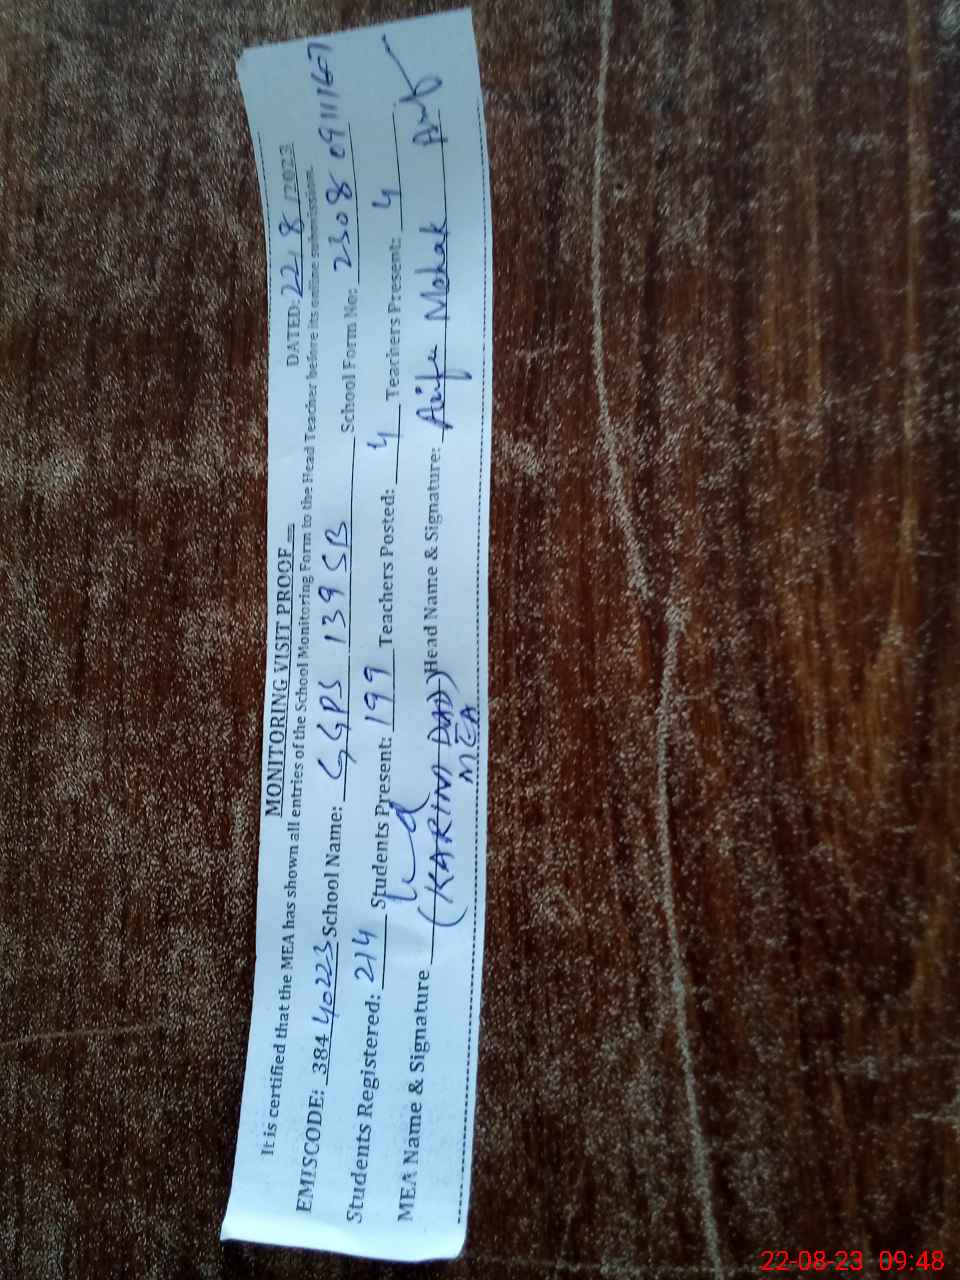 MONITORING VISIT PROOF
DATED: 22/8/2023
It is certified that the MEA has shown all entries of the School Monitoring Form to the Head Teacher before its online submission.
EMISCODE: 38440223 School Name: GGPS 139 SB School Form No: 2308091111607
Students Registered: 214 Students Present: 199 Teachers Posted: 4 Teachers Present: 4
MEA Name & Signature (KARIM DAD) Head Name & Signature:
MEA
22-08-23 09:48